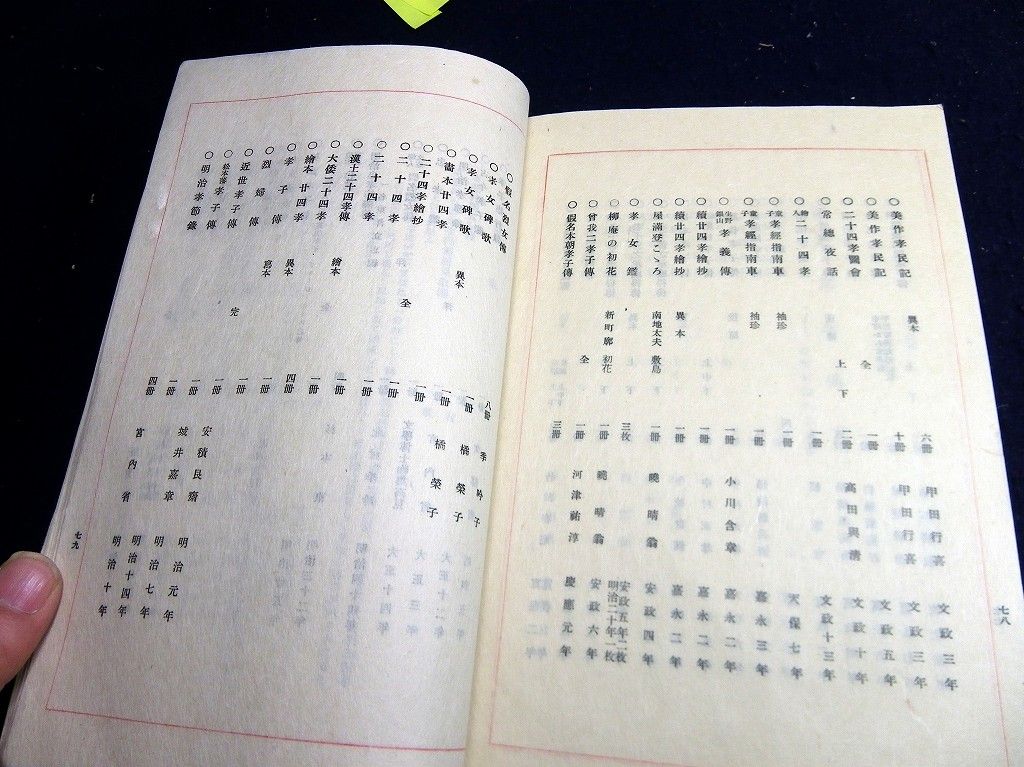 ○美作孝民記 異本 六冊 甲田行喜 文政三年
○美作孝民記 十冊 甲田行喜 文政三年
○二十四孝圖會 全 一冊 高田與清 文政五年
○常總夜話 上下 二冊 文政十年
○繪入二十四孝 一冊 文政十三年
○童子孝經指南車 袖珍 一冊 天保七年
○童子孝經指南車 袖珍 一冊 嘉永三年
○生野銀山孝義傳 一冊 小川含章 嘉永二年
○續廿四孝繪抄 一冊 嘉永二年
○續廿四孝繪抄 異本 一冊 嘉永二年
○屋滿登こゝろ 南地太夫敷島 一冊 曉晴翁 安政四年
○孝女鑑 三枚 安政五年二枚 明治二十年一枚
○柳庵の初花 新町廓初花 一冊 曉晴翁 安政六年
○曾我二孝子傳 全 一冊 河津祐淳 慶應元年
○假名本朝孝子傳 三冊
七八
○假名烈女傳 八冊 季吟子
○孝女碑歌 一冊 橘榮子
○孝女碑歌 異本 一冊 橘榮子
○畵本廿四孝 一冊
○二十四孝繪抄 一冊
○二十四孝 全 一冊
○二十四孝 一冊
○漢土二十四孝傳 一冊
○大倭二十四孝 繪本 一冊
○繪本廿四孝 一冊
○孝子傳 異本 四冊
○烈婦傳 寫本 一冊
○近世孝子傳 一冊 安積艮齋 明治元年
○繪本孝子傳 完 一冊 城井嘉章 明治七年
○明治孝節錄 四冊 宮內省 明治十年
明治十四年
七九